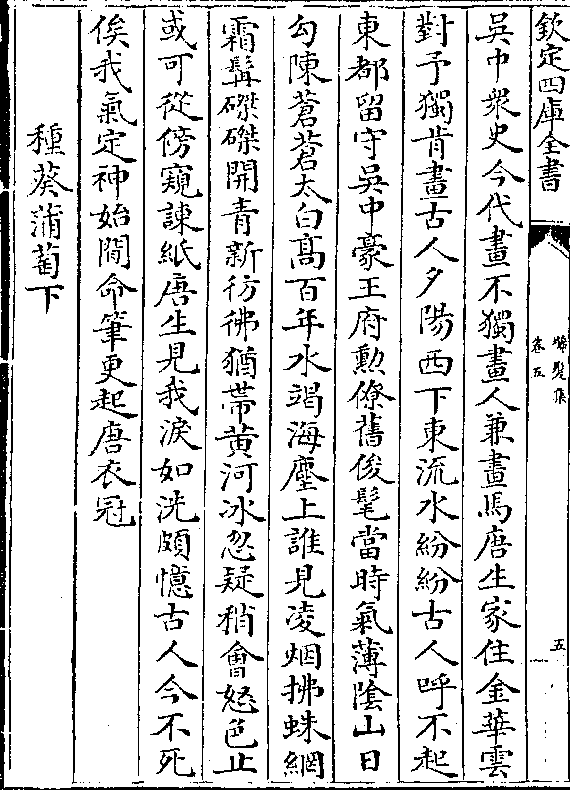 欽定四庫全書
晞髮集
卷五
五
吳中衆史今代畫不獨畫人兼畫馬唐生家住金華雲
對予獨肯畫古人夕陽西下東流水紛紛古人呼不起
東都留守吳中豪王府勲僚舊俊髦當時氣薄隂山日
勾陳蒼蒼太白髙百年水竭海塵上誰見凌烟拂蛛網
霜髯磔磔開青新彷彿猶帶黄河冰忽疑稍會怒色止
或可從傍窺諫紙唐生見我淚如洗頗憶古人今不死
俟我氣定神始閒命筆更起唐衣冠
種葵蒲萄下